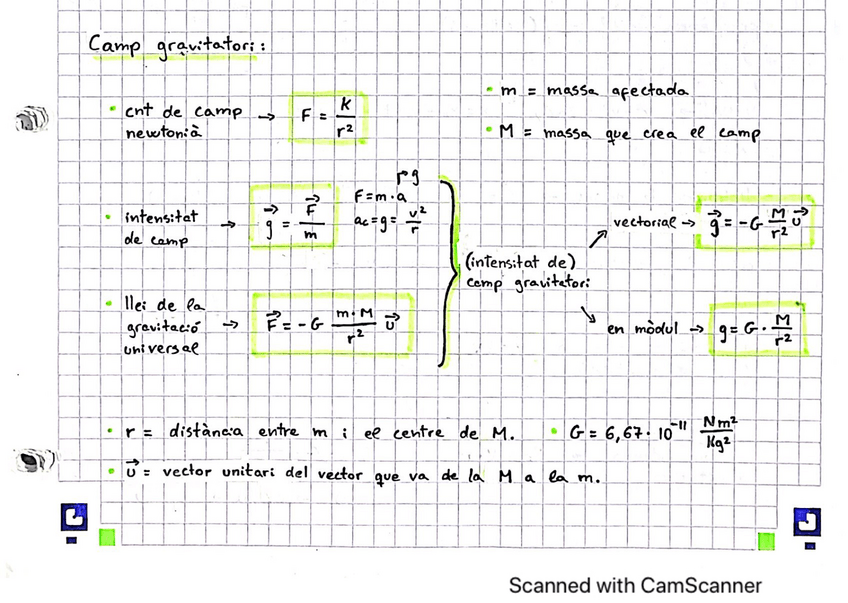 Camp gravitatori:
• cnt de camp → F = K/r²
newtonià
• m = massa afectada
• M = massa que crea el camp
• intensitat → g⃗ = F⃗/m
de camp
r→g
F = m·a
ac = g = v²/r
• llei de la
gravitació → F⃗ = -G m·M/r² u⃗
universal
(intensitat de)
camp gravitatori
vectorial → g⃗ = -G M/r² u⃗
en mòdul → g = G · M/r²
• r = distància entre m i el centre de M. • G = 6,67·10⁻¹¹ Nm²/Kg²
• u⃗ = vector unitari del vector que va de la M a la m.
Scanned with CamScanner